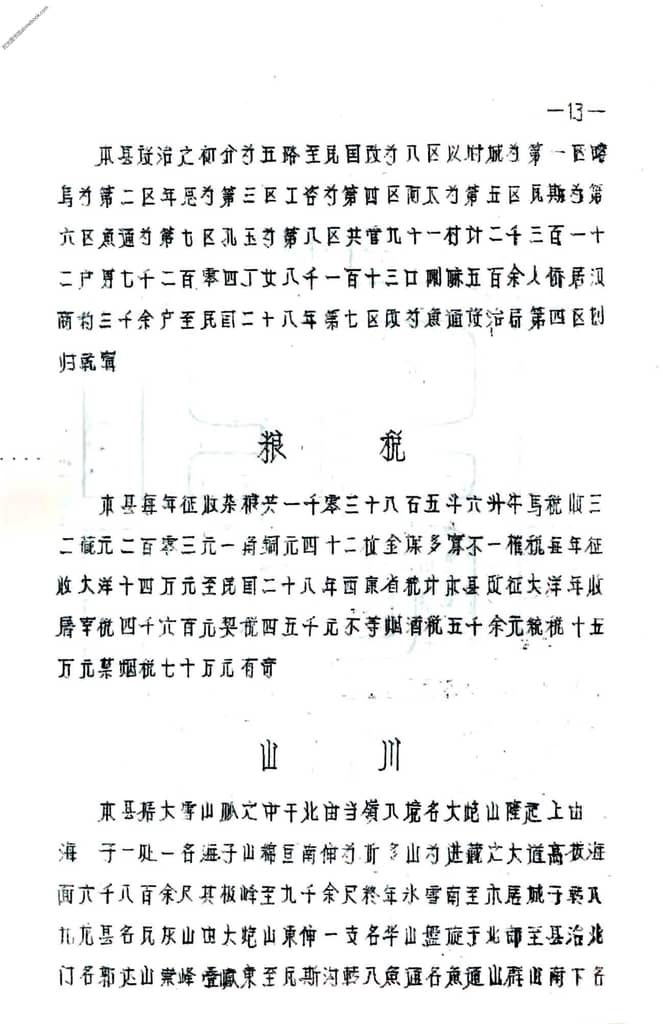 —13—
本县政治之初分为五路至民国改为八区以附城为第一区喀
乌为第二区年思为第三区工咨为第四区南太为第五区瓦斯为第
六区鱼通为第七区孔玉为第八区共管九十一村计二千三百一十
二户男七千二百零四丁女八千一百十三口喇嘛五百余人侨居汉
商约三千余户至民国二十八年第七区改为鱼通政治局第四区划
归乾宁
粮 税
本县每年征收杂粮共一千零三十八百五斗六升牛马税收三
二藏元二百零三元一角铜元四十二枚金课多寡不一榷税每年征
收大洋十四万元至民国二十八年西康省统计本县改征大洋年收
屠宰税四千六百元契税四五千元不等烟酒税五千余元税税十五
万元禁烟税七十万元有奇
山 川
本县据大雪山脉之中干北由当岭入境名大炮山隆起上由
海 子一处一名海子山绵亘南伸为折多山为进藏之大道高拔海
面六千八百余尺其极峰至九千余尺终年冰雪南至木居城子转入
九龙县名瓦灰山由大炮山东伸一支名华山盘旋于北部至县治北
门名郭达山崇峰叠巘东至瓦斯沟转入鱼通名鱼通山群山南下名